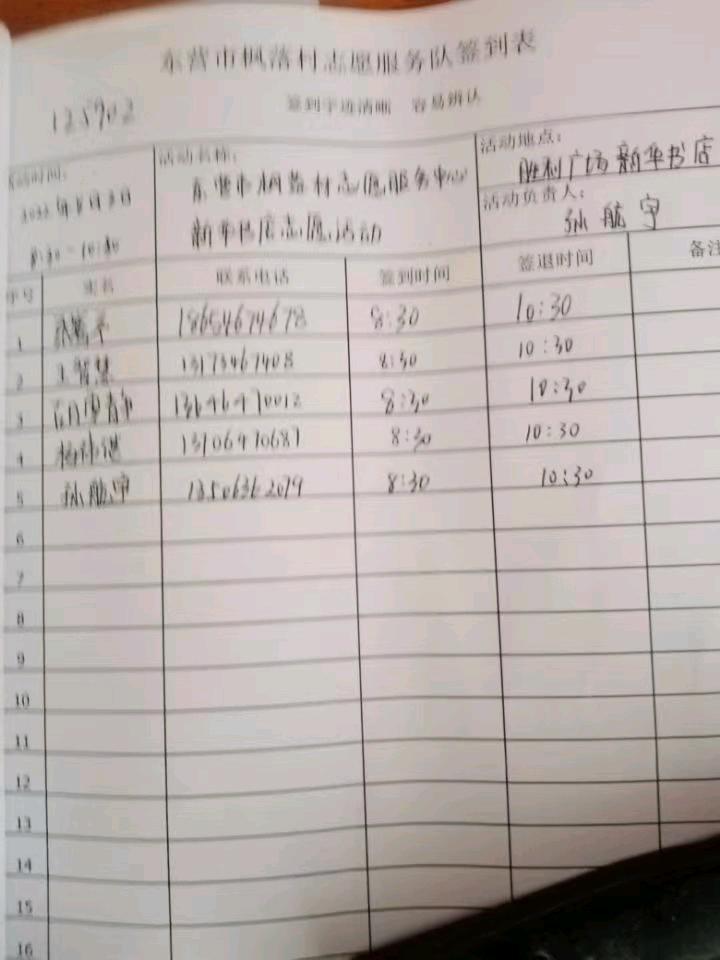 东营市枫落村志愿服务队签到表
签到字迹清晰 容易辨认
125902
活动时间:
8:30-10:30
活动名称:
东营市枫落村志愿服务中心
新华书店志愿活动
活动地点:
胜利广场新华书店
活动负责人:
孙航宇
序号 姓名 联系电话 签到时间 签退时间 备注
1 18654674678 8:30 10:30
2 王智慧 13173467408 8:30 10:30
3 8:30 10:30
4 8:30 10:30
5 孙航宇 8:30 10:30
6
7
8
9
10
11
12
13
14
15
16